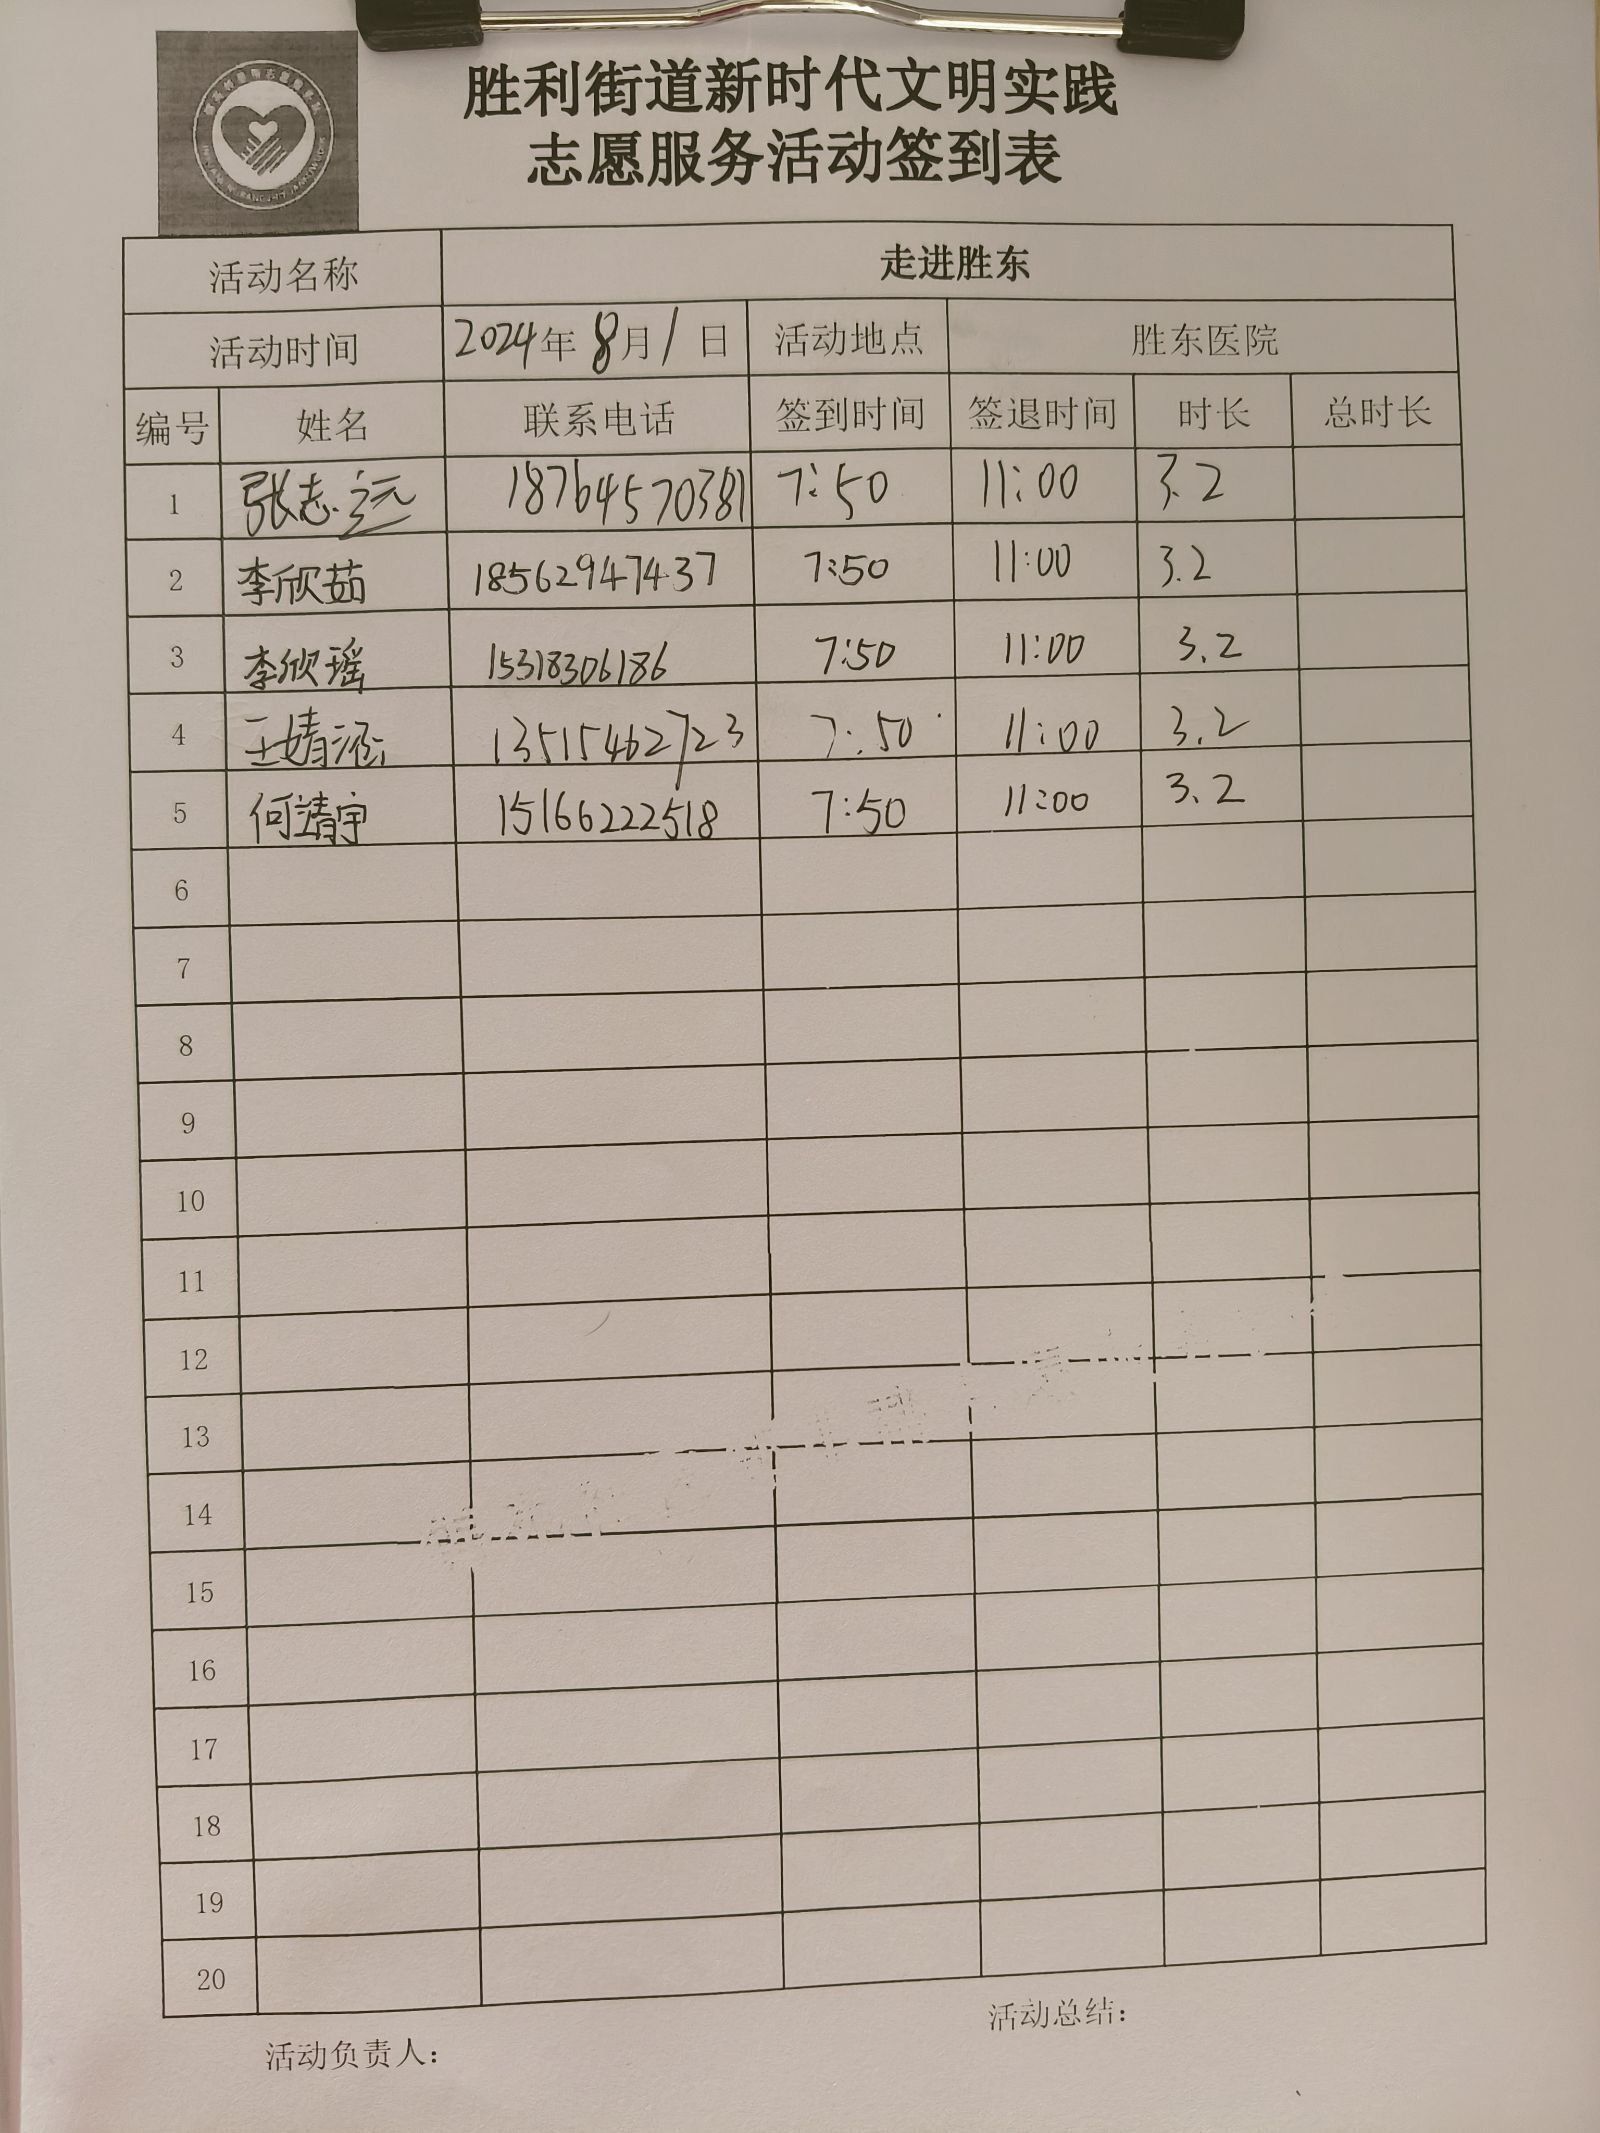 胜利街道新时代文明实践
志愿服务活动签到表
活动名称 走进胜东
活动时间 2024年8月1日 活动地点 胜东医院
编号 姓名 联系电话 签到时间 签退时间 时长 总时长
1 张志远 18764570381 7:50 11:00 3.2
2 李欣茹 18562947437 7:50 11:00 3.2
3 李欣瑶 15318306186 7:50 11:00 3.2
4 王婧涵 13515462723 7:50 11:00 3.2
5 何靖宇 15166222518 7:50 11:00 3.2
6
7
8
9
10
11
12
13
14
15
16
17
18
19
20
活动负责人: 活动总结: